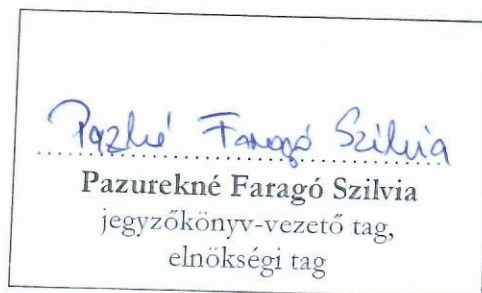 Pazné Faragó Szilvia
Pazurekné Faragó Szilvia
jegyzőkönyv-vezető tag,
elnökségi tag